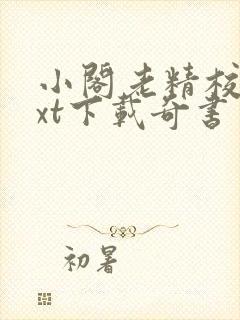 小閣老精校
xt下載奇書
初暑